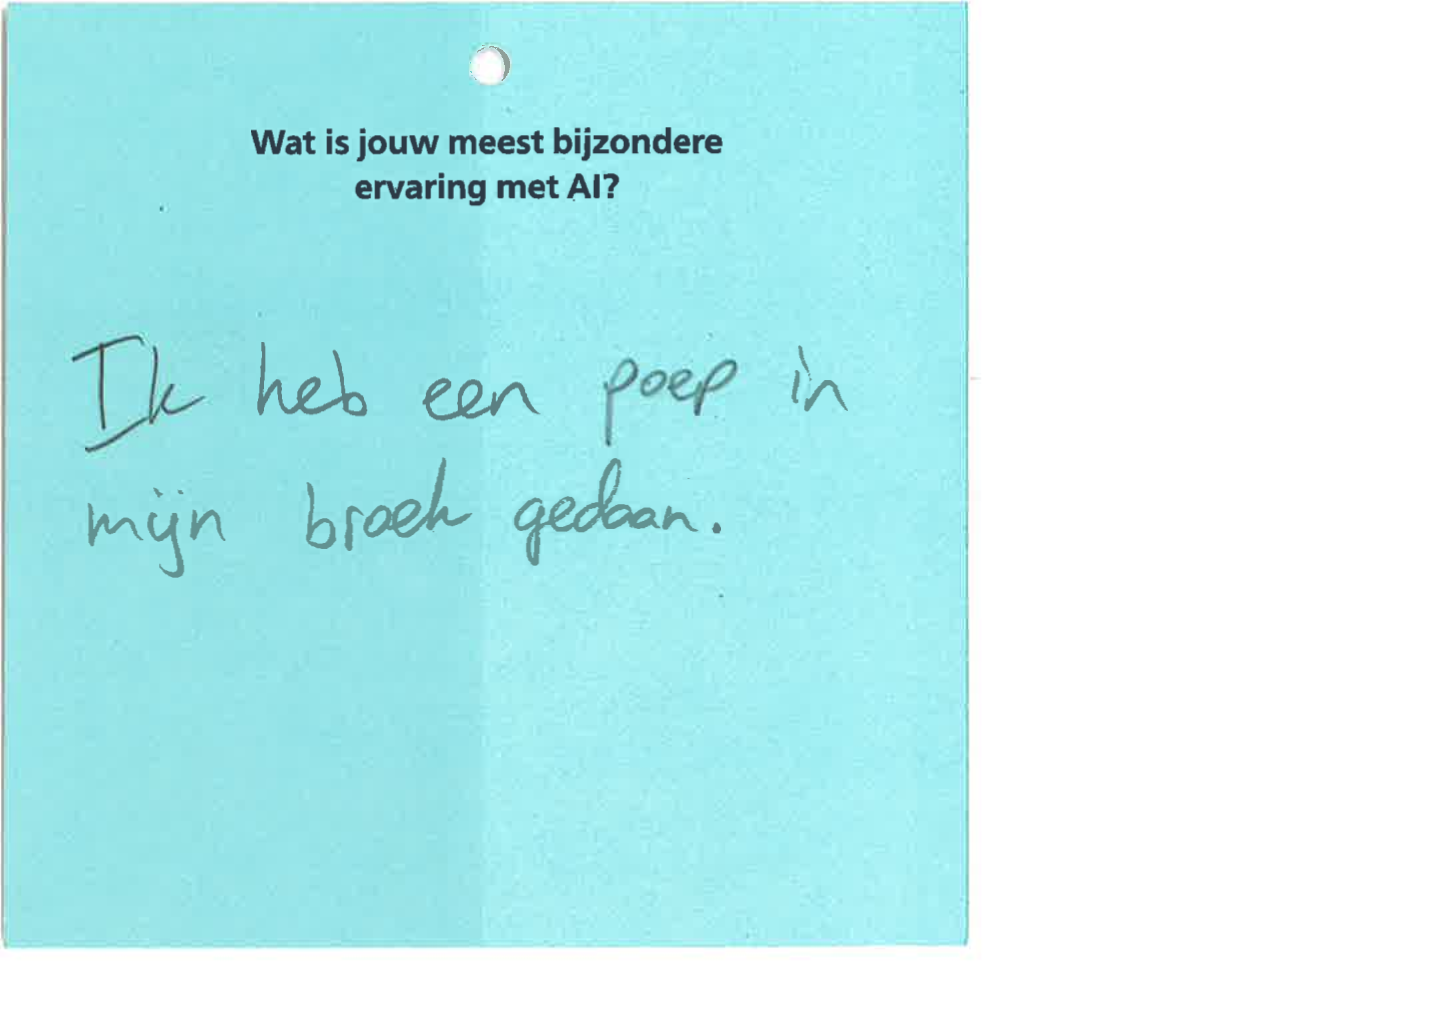 Wat is jouw meest bijzondere
ervaring met AI?
Ik heb een poep in
mijn broek gedaan.